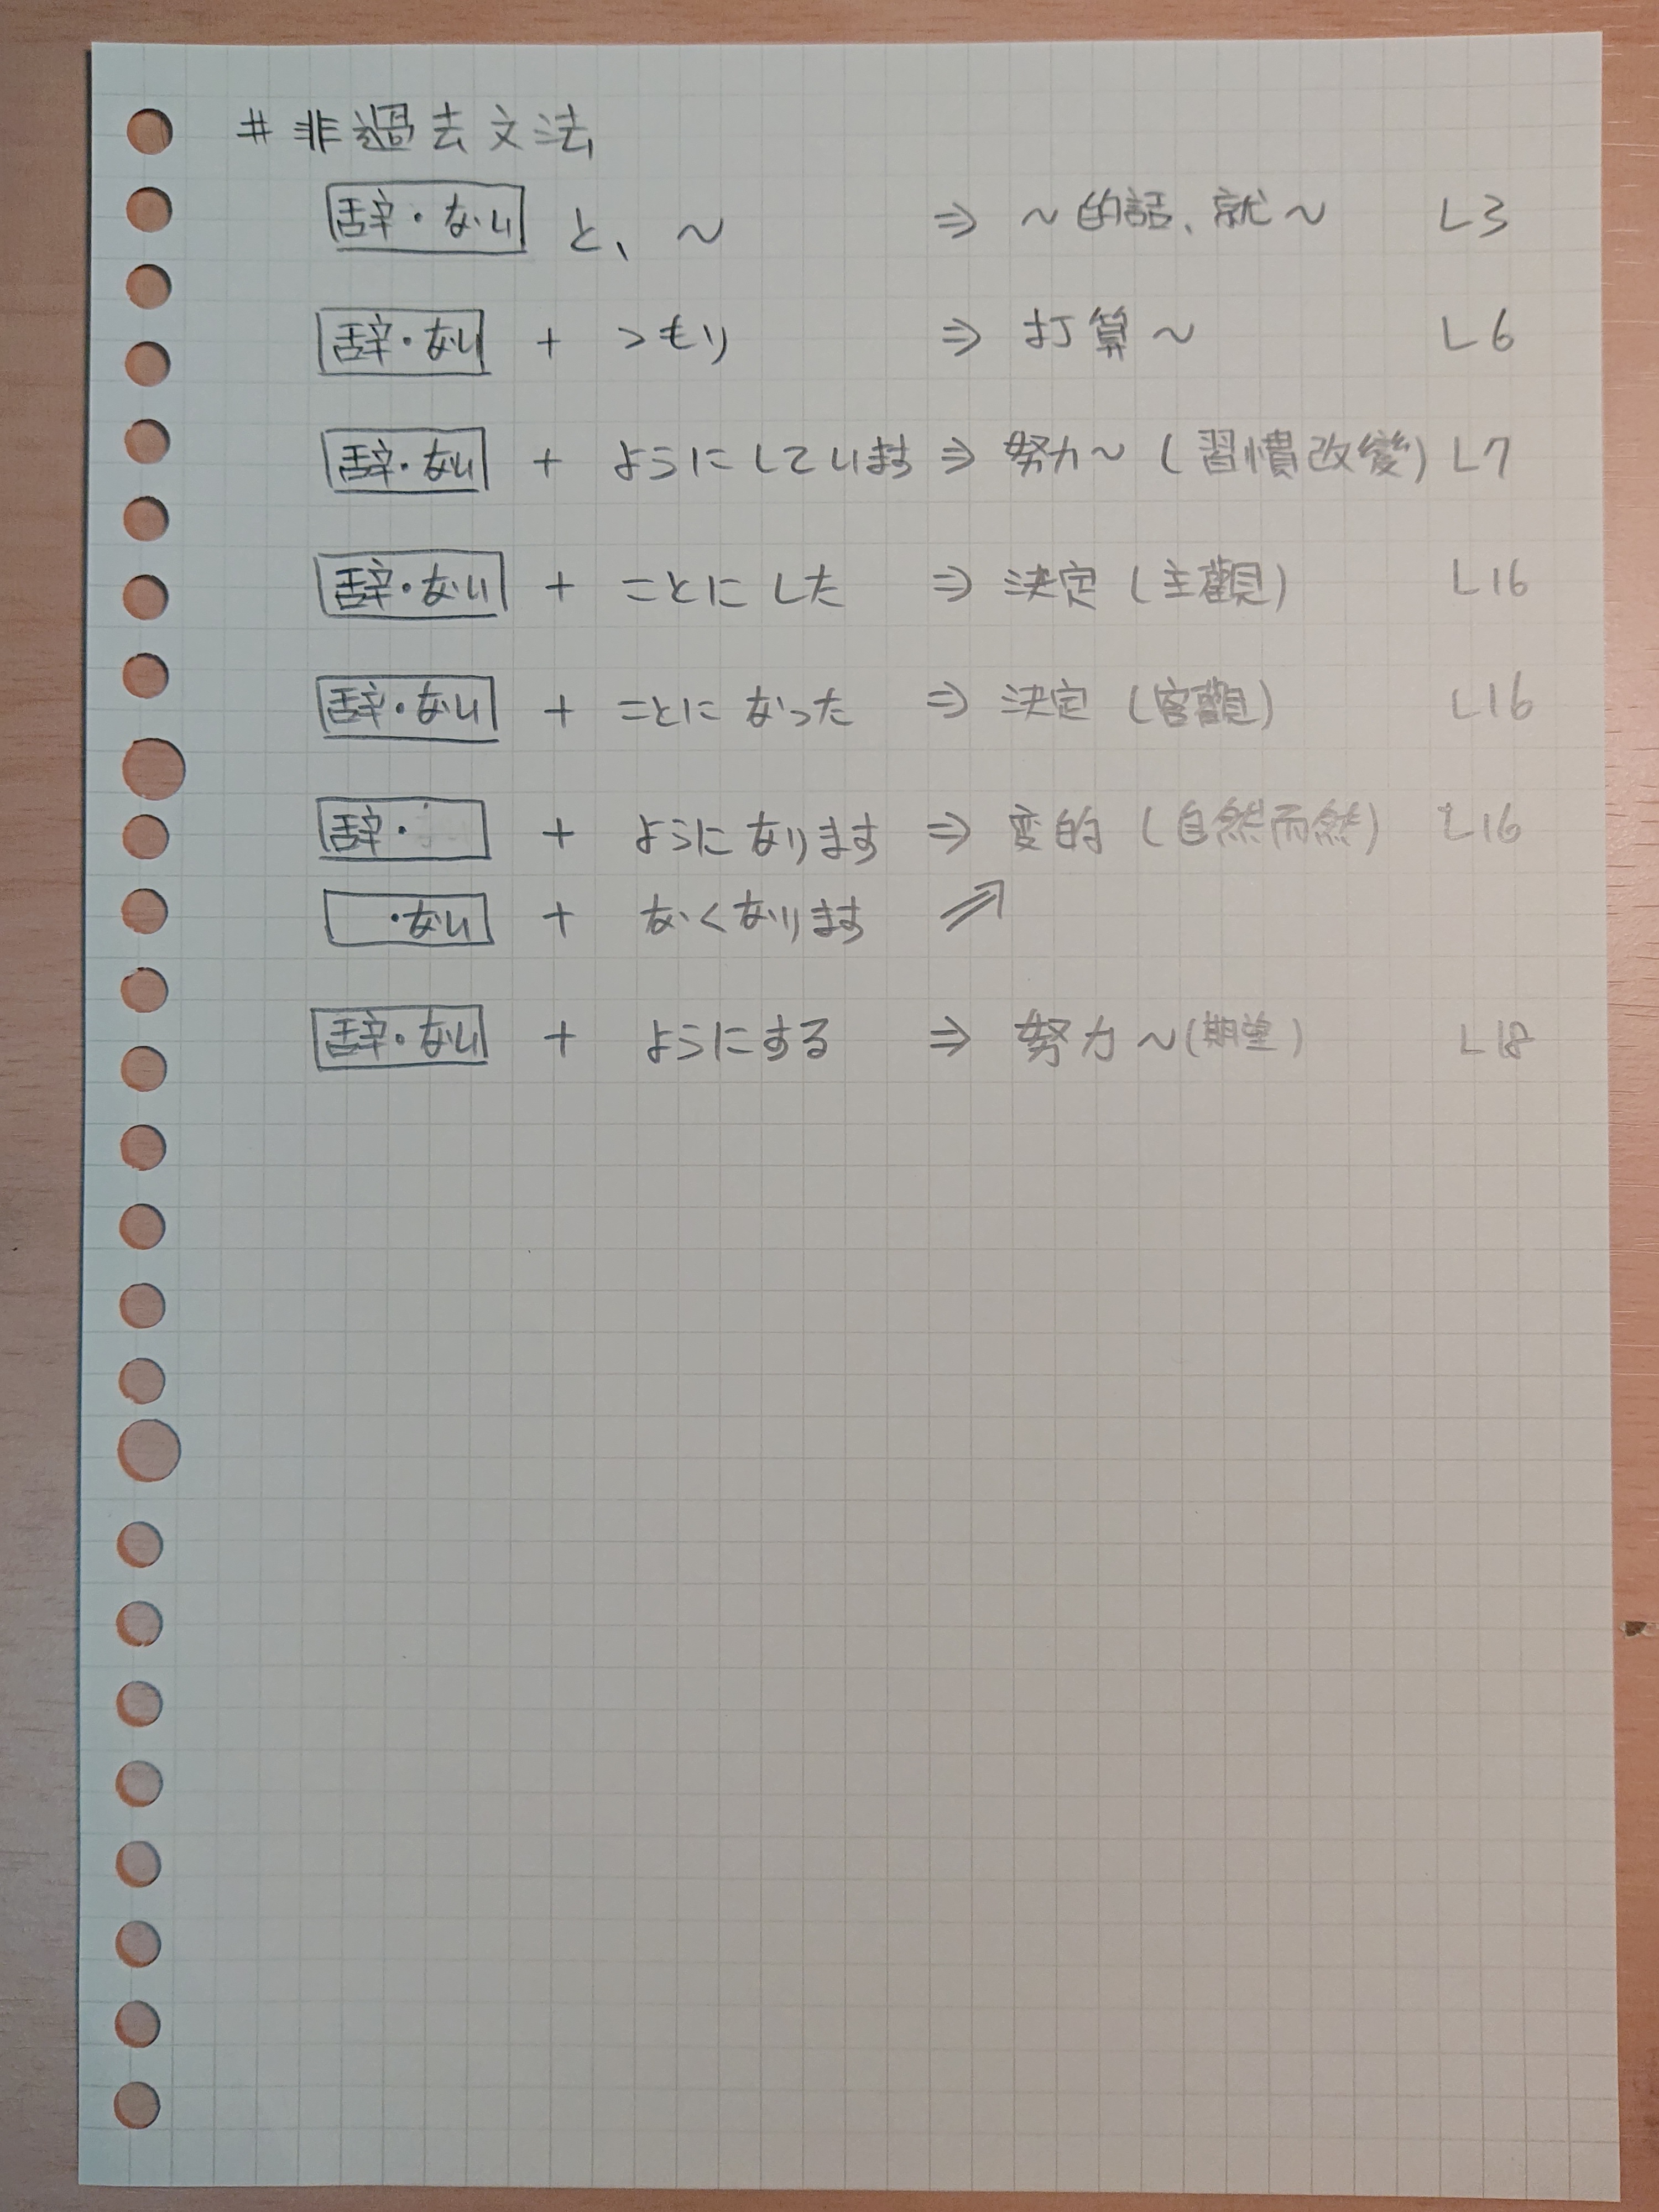 # 非過去文法
辞・ない と、～ ⇒ ～的話、就～ L3
辞・ない + つもり ⇒ 打算～ L6
辞・ない + ようにしています ⇒ 努力～(習慣改變) L7
辞・ない + ことにした ⇒ 決定(主觀) L16
辞・ない + ことになった ⇒ 決定(客觀) L16
辞・ + ようになります ⇒ 変的(自然而然) L16
・ない + なくなります ⇗
辞・ない + ようにする ⇒ 努力～(期望) L18